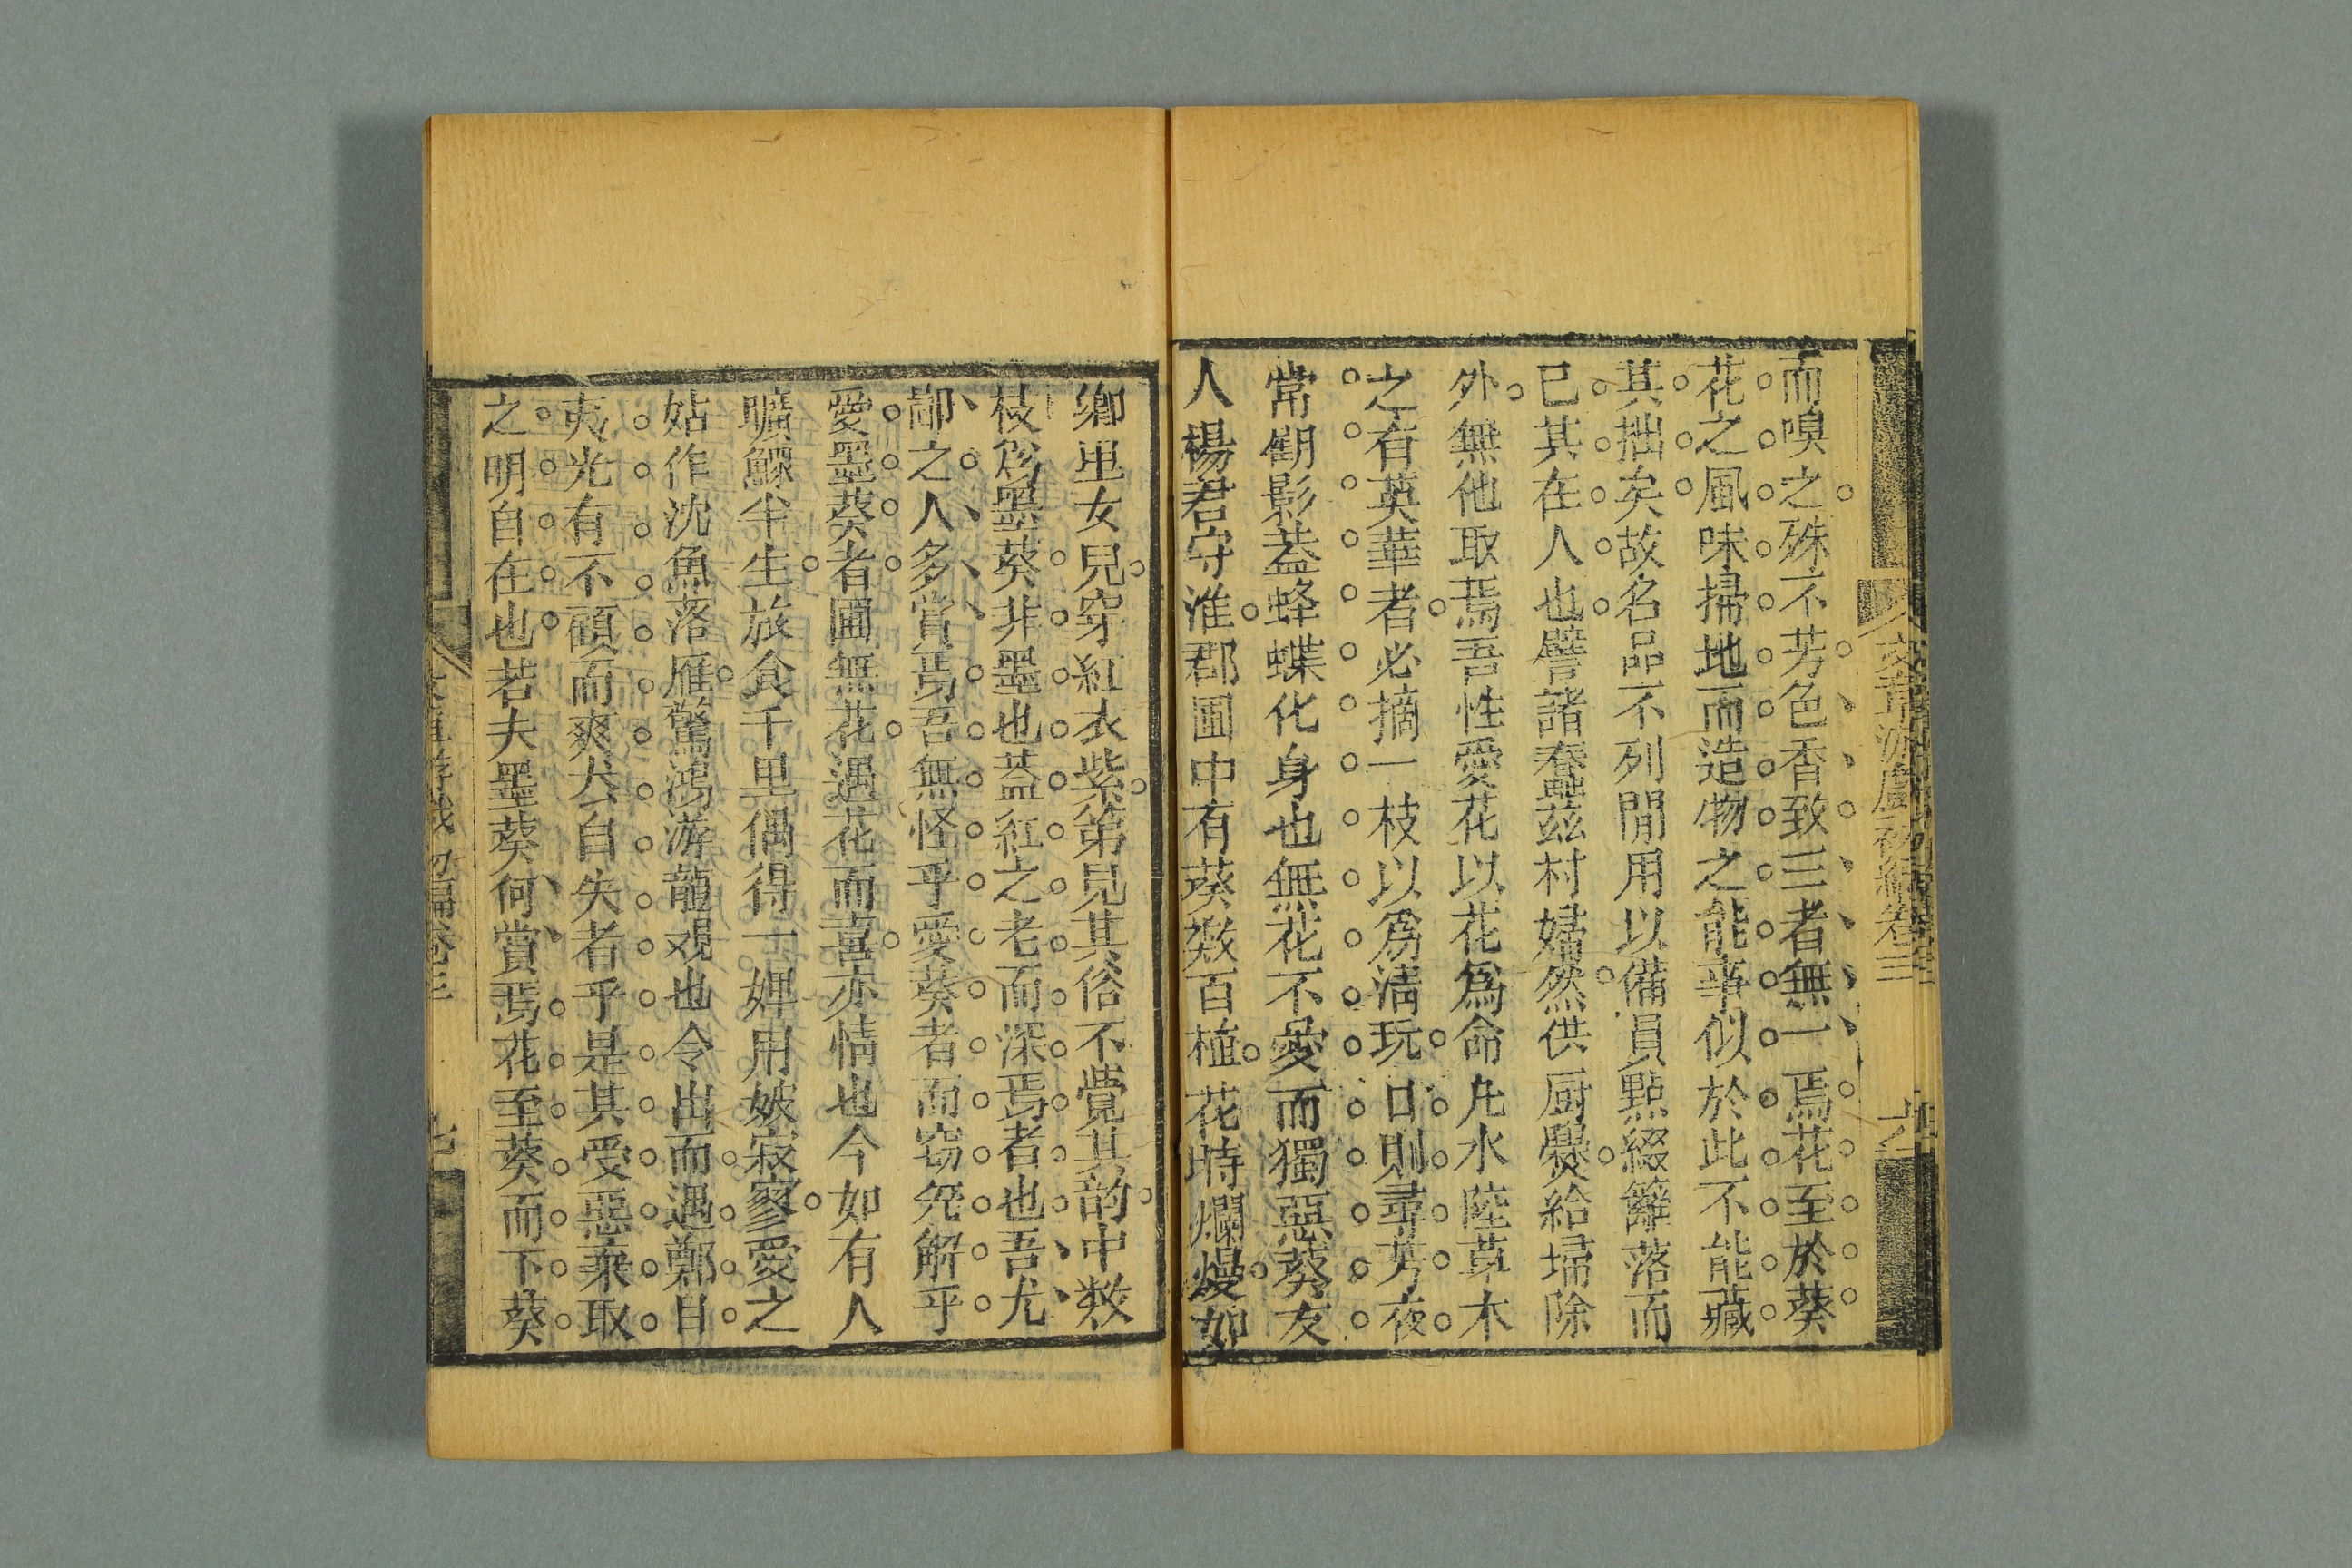 而嗅之殊不芳色香致三者無一焉花至於葵
花之風味掃地而造物之能事似於此不能藏
其拙矣故名品不列閒用以備員點綴籬落而
已其在人也譬諸蠢茲村婦然供厨爨給埽除
外無他取焉吾性愛花以花爲命凡水陸草木
之有英華者必摘一枝以爲清玩日則尋芳夜
常翻影蓋蜂蝶化身也無花不愛而獨惡葵友
人楊君守淮郡圃中有葵数百植花時爛熳如
鄉里女兒穿紅衣紫第見其俗不覺其韵中数
枝爲墨葵非墨也蓋紅之老而深焉者也吾尤
鄙之人多賞焉吾無怪乎愛葵者而竊兔解乎
愛墨葵者圃無花遇花而喜亦情也今如有人
曠鰥半生旅食千里偶得一婢用娛寂寥愛之
姑作沈魚落雁驚鴻游龍观也令出而遇鄭旦
夷光有不顧而爽然自失者乎是其受惡棄取
之明自在也若夫墨葵何賞焉花至葵而下葵
文章游戲初編卷三